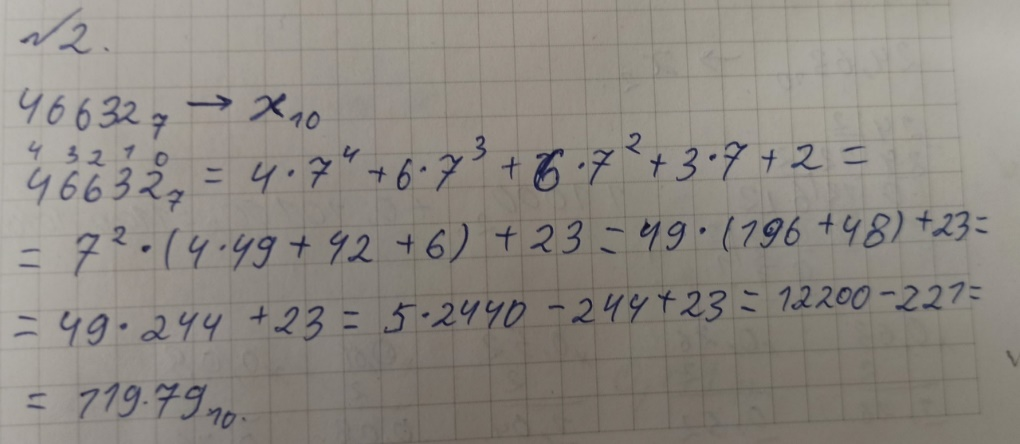 №2.
46632₇ → x₁₀
4 3 2 1 0
46632₇ = 4·7⁴ + 6·7³ + 6·7² + 3·7 + 2 =
= 7² · (4·49 + 42 + 6) + 23 = 49 · (196 + 48) + 23 =
= 49 · 244 + 23 = 5·2440 - 244 + 23 = 12200 - 221 =
= 119.79₁₀.